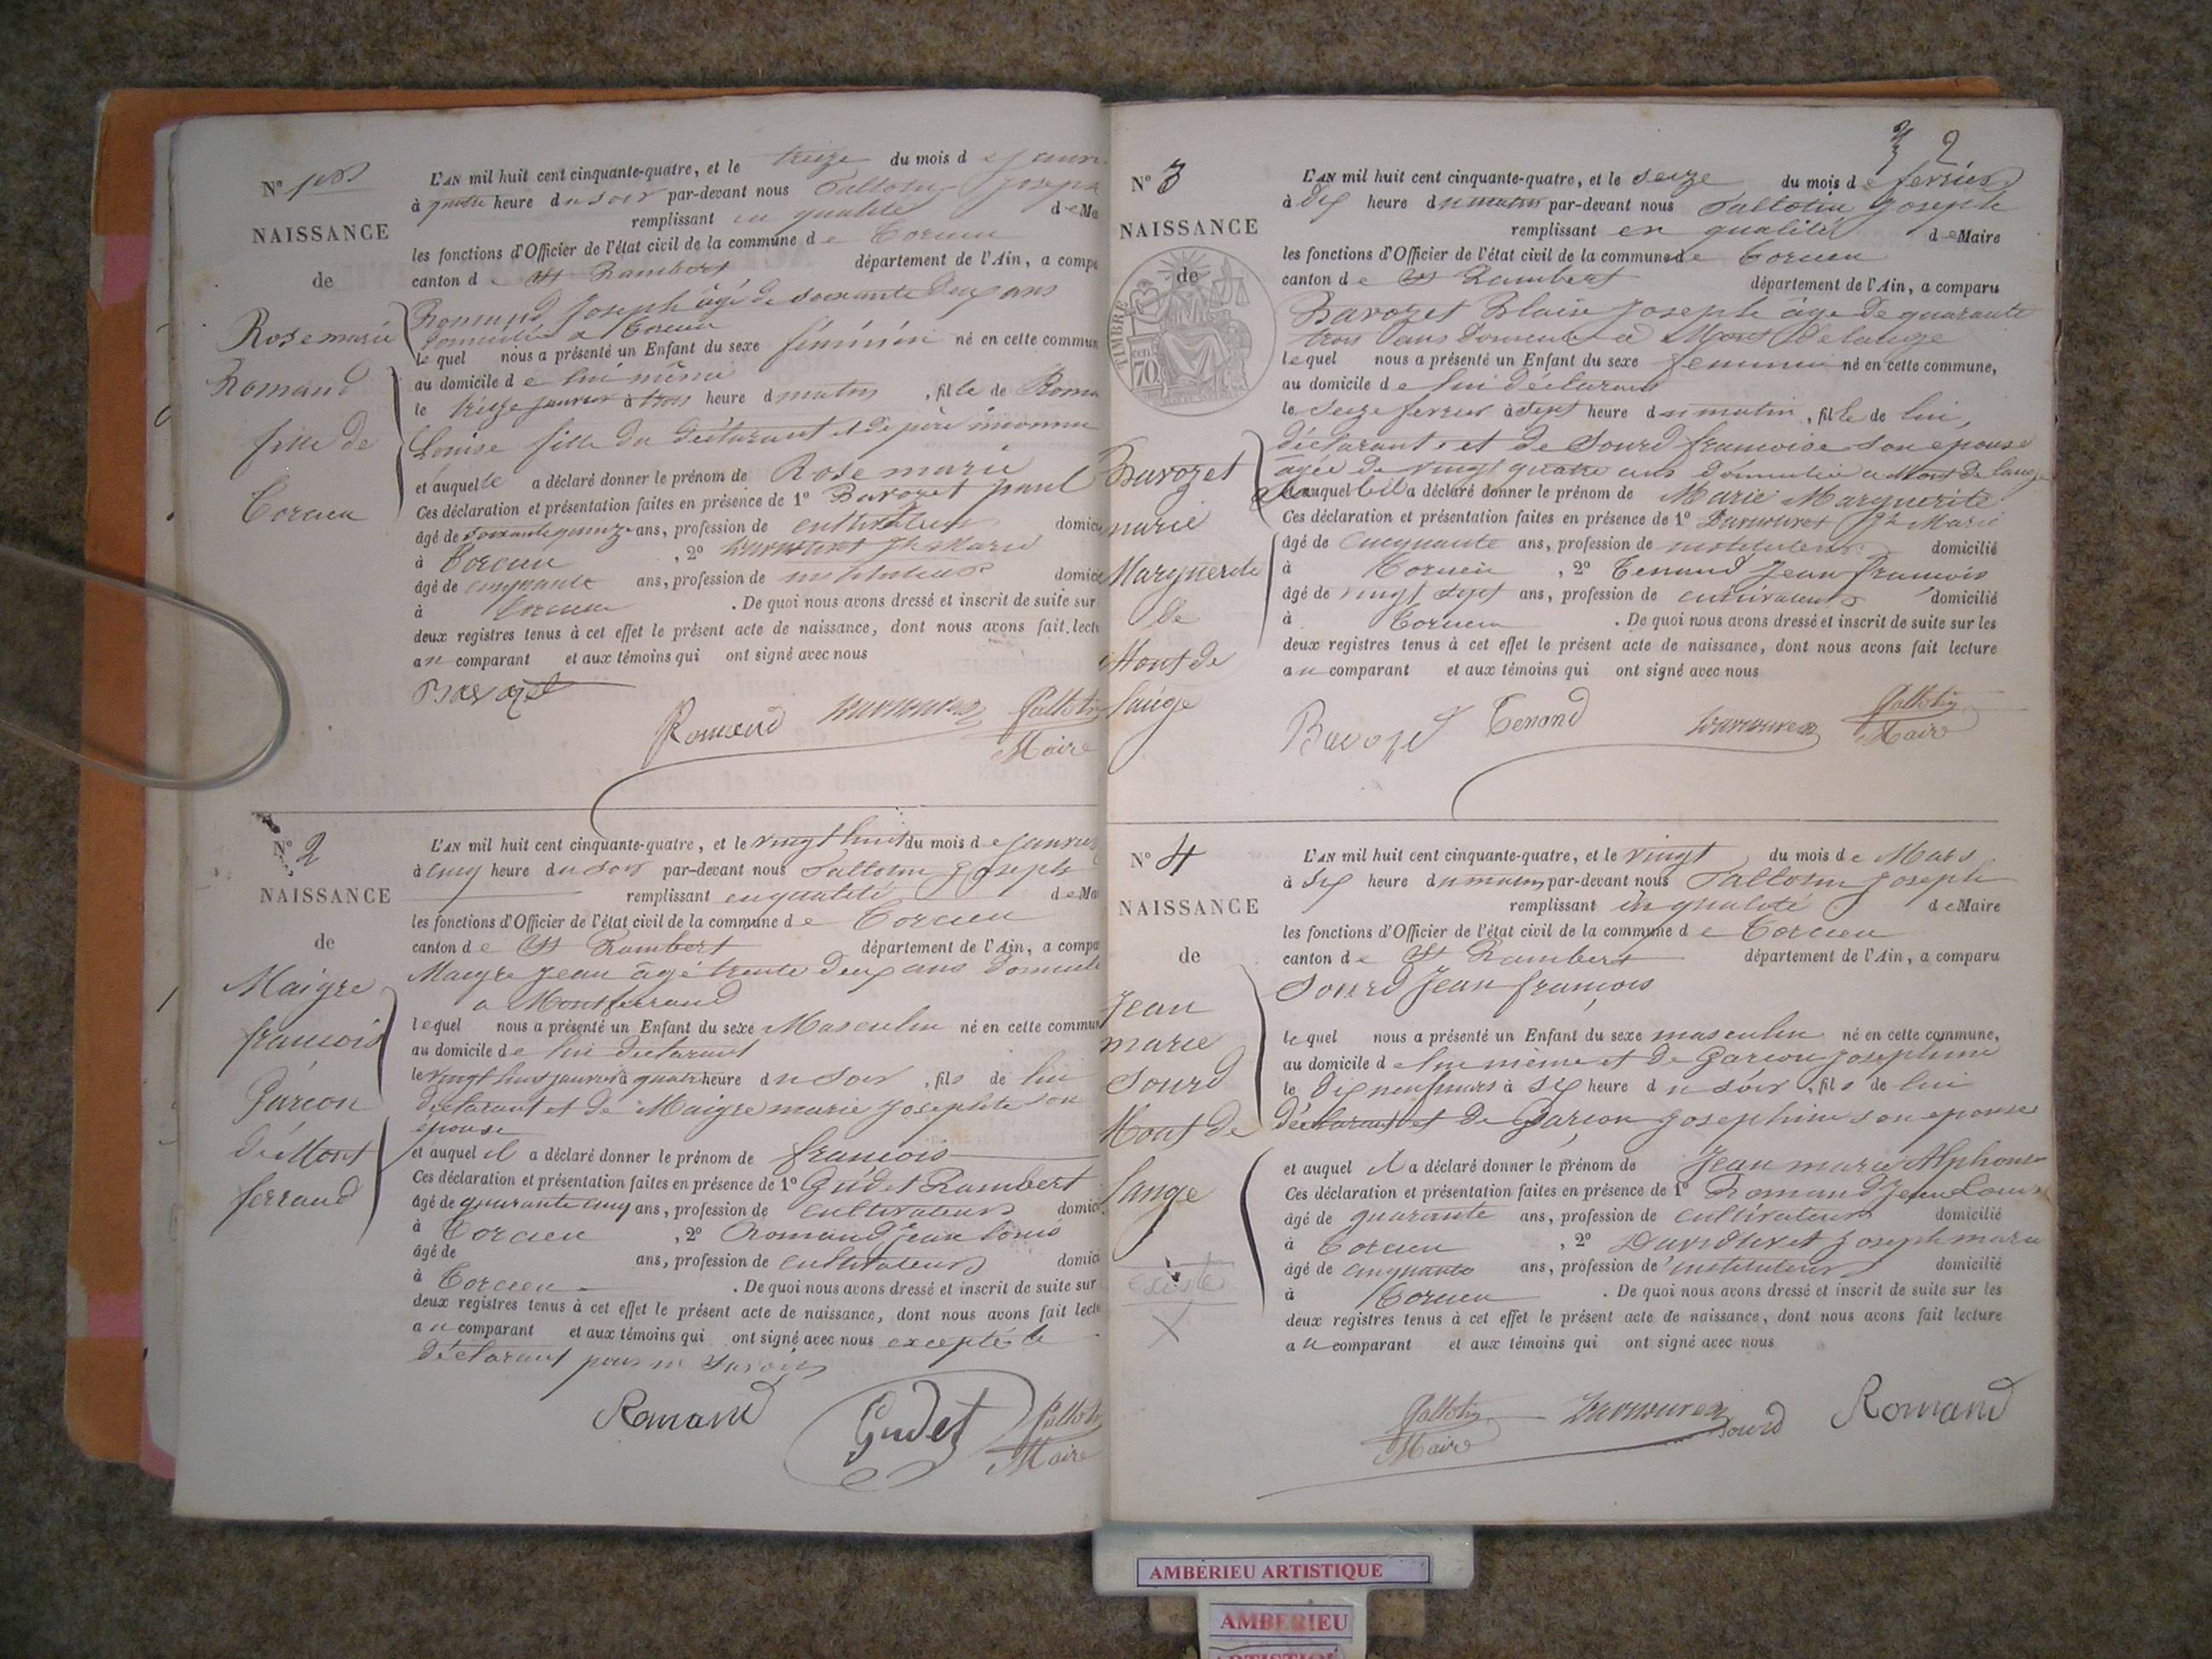 N° 1er
NAISSANCE
de
Rose marie
Romand
fille de
Torcieu
L'AN mil huit cent cinquante-quatre, et le treize du mois de janvi
à quatre heure du soir par-devant nous Joseph
remplissant en qualité de Ma
les fonctions d'Officier de l'état civil de la commune de Torcieu
canton de St Rambert département de l'Ain, a compa
Romand Joseph âgé de soixante deux ans
domicilié à Torcieu
lequel nous a présenté un Enfant du sexe féminin né en cette commun
au domicile de lui même
le treize janvier à trois heure du matin, fille de Roma
Louise fille du déclarant et de père inconnu
et auquelle a déclaré donner le prénom de Rose marie
Ces déclaration et présentation faites en présence de 1° Bavozet paul
âgé de soixante quinze ans, profession de cultivateur domici
à Torcieu, 2° Jh Marie
âgé de cinquante ans, profession de instituteur domici
à Torcieu. De quoi nous avons dressé et inscrit de suite sur
deux registres tenus à cet effet le présent acte de naissance, dont nous avons fait lectu
au comparant et aux témoins qui ont signé avec nous
Bavozet
Romand
Maire
N° 2
NAISSANCE
de
Maigre
francois
Garcon
de Mont
ferrand
L'AN mil huit cent cinquante-quatre, et le vingt huit du mois de janvier
à cinq heure du soir par-devant nous Joseph
remplissant en qualité de Ma
les fonctions d'Officier de l'état civil de la commune de Torcieu
canton de St Rambert département de l'Ain, a compa
Maigre Jean âgé trente deux ans domicilié
a Montferrand
lequel nous a présenté un Enfant du sexe Masculin né en cette commun
au domicile de lui declarant
le vingt huit janvier à quatre heure du soir, fils de lui
declarant et de Maigre marie Josephte son
épouse
et auquel il a déclaré donner le prénom de francois
Ces déclaration et présentation faites en présence de 1° Gudet Rambert
âgé de quarante cinq ans, profession de cultivateur domici
à Torcieu, 2° Romand Jean Louis
âgé de ans, profession de cultivateur domici
à Torcieu. De quoi nous avons dressé et inscrit de suite sur
deux registres tenus à cet effet le présent acte de naissance, dont nous avons fait lectu
au comparant et aux témoins qui ont signé avec nous excepté le
déclarant pour ne savoir
Romand
Gudet
Maire
2
N° 3
NAISSANCE
de
TIMBRE
70 cen
Bavozet
marie
Marguerite
de
Mont de
lange
L'AN mil huit cent cinquante-quatre, et le seize du mois de fevrier
à dix heure du matin par-devant nous Joseph
remplissant en qualité de Maire
les fonctions d'Officier de l'état civil de la commune de Torcieu
canton de St Rambert département de l'Ain, a comparu
Bavozet Blaise Joseph âgé de quarante
trois ans domicilié à Mont de lange
lequel nous a présenté un Enfant du sexe feminin né en cette commune,
au domicile de lui déclarant
le seize fevrier à sept heure du matin, fille de lui,
déclarant et de Sourd francoise son epouse
âgée de vingt quatre ans domiciliée a Mont de lange
et auquelle il a déclaré donner le prénom de Marie Marguerite
Ces déclaration et présentation faites en présence de 1° Jh Marie
âgé de cinquante ans, profession de instituteur domicilié
à Torcieu, 2° Tenand Jean francois
âgé de vingt sept ans, profession de cultivateur domicilié
à Torcieu. De quoi nous avons dressé et inscrit de suite sur les
deux registres tenus à cet effet le présent acte de naissance, dont nous avons fait lecture
au comparant et aux témoins qui ont signé avec nous
Bavozet
Tenand
Maire
N° 4
NAISSANCE
de
Jean
marie
Sourd
Mont de
lange
L'AN mil huit cent cinquante-quatre, et le vingt du mois de Mars
à six heure du matin par-devant nous Joseph
remplissant en qualité de Maire
les fonctions d'Officier de l'état civil de la commune de Torcieu
canton de St Rambert département de l'Ain, a comparu
Sourd Jean francois
lequel nous a présenté un Enfant du sexe masculin né en cette commune,
au domicile de lui même et de Garcon Josephine
le dix neuf mars à six heure du soir, fils de lui
déclarant et de Garcon Josephine son epouse
et auquel il a déclaré donner le prénom de Jean marie Alphonse
Ces déclaration et présentation faites en présence de 1° Romand Jean Louis
âgé de quarante ans, profession de cultivateur domicilié
à Torcieu, 2° Joseph marie
âgé de cinquante ans, profession de instituteur domicilié
à Torcieu. De quoi nous avons dressé et inscrit de suite sur les
deux registres tenus à cet effet le présent acte de naissance, dont nous avons fait lecture
au comparant et aux témoins qui ont signé avec nous
Maire
Sourd
Romand
AMBÉRIEU ARTISTIQUE
AMBERIEU
ARTISTIQUE